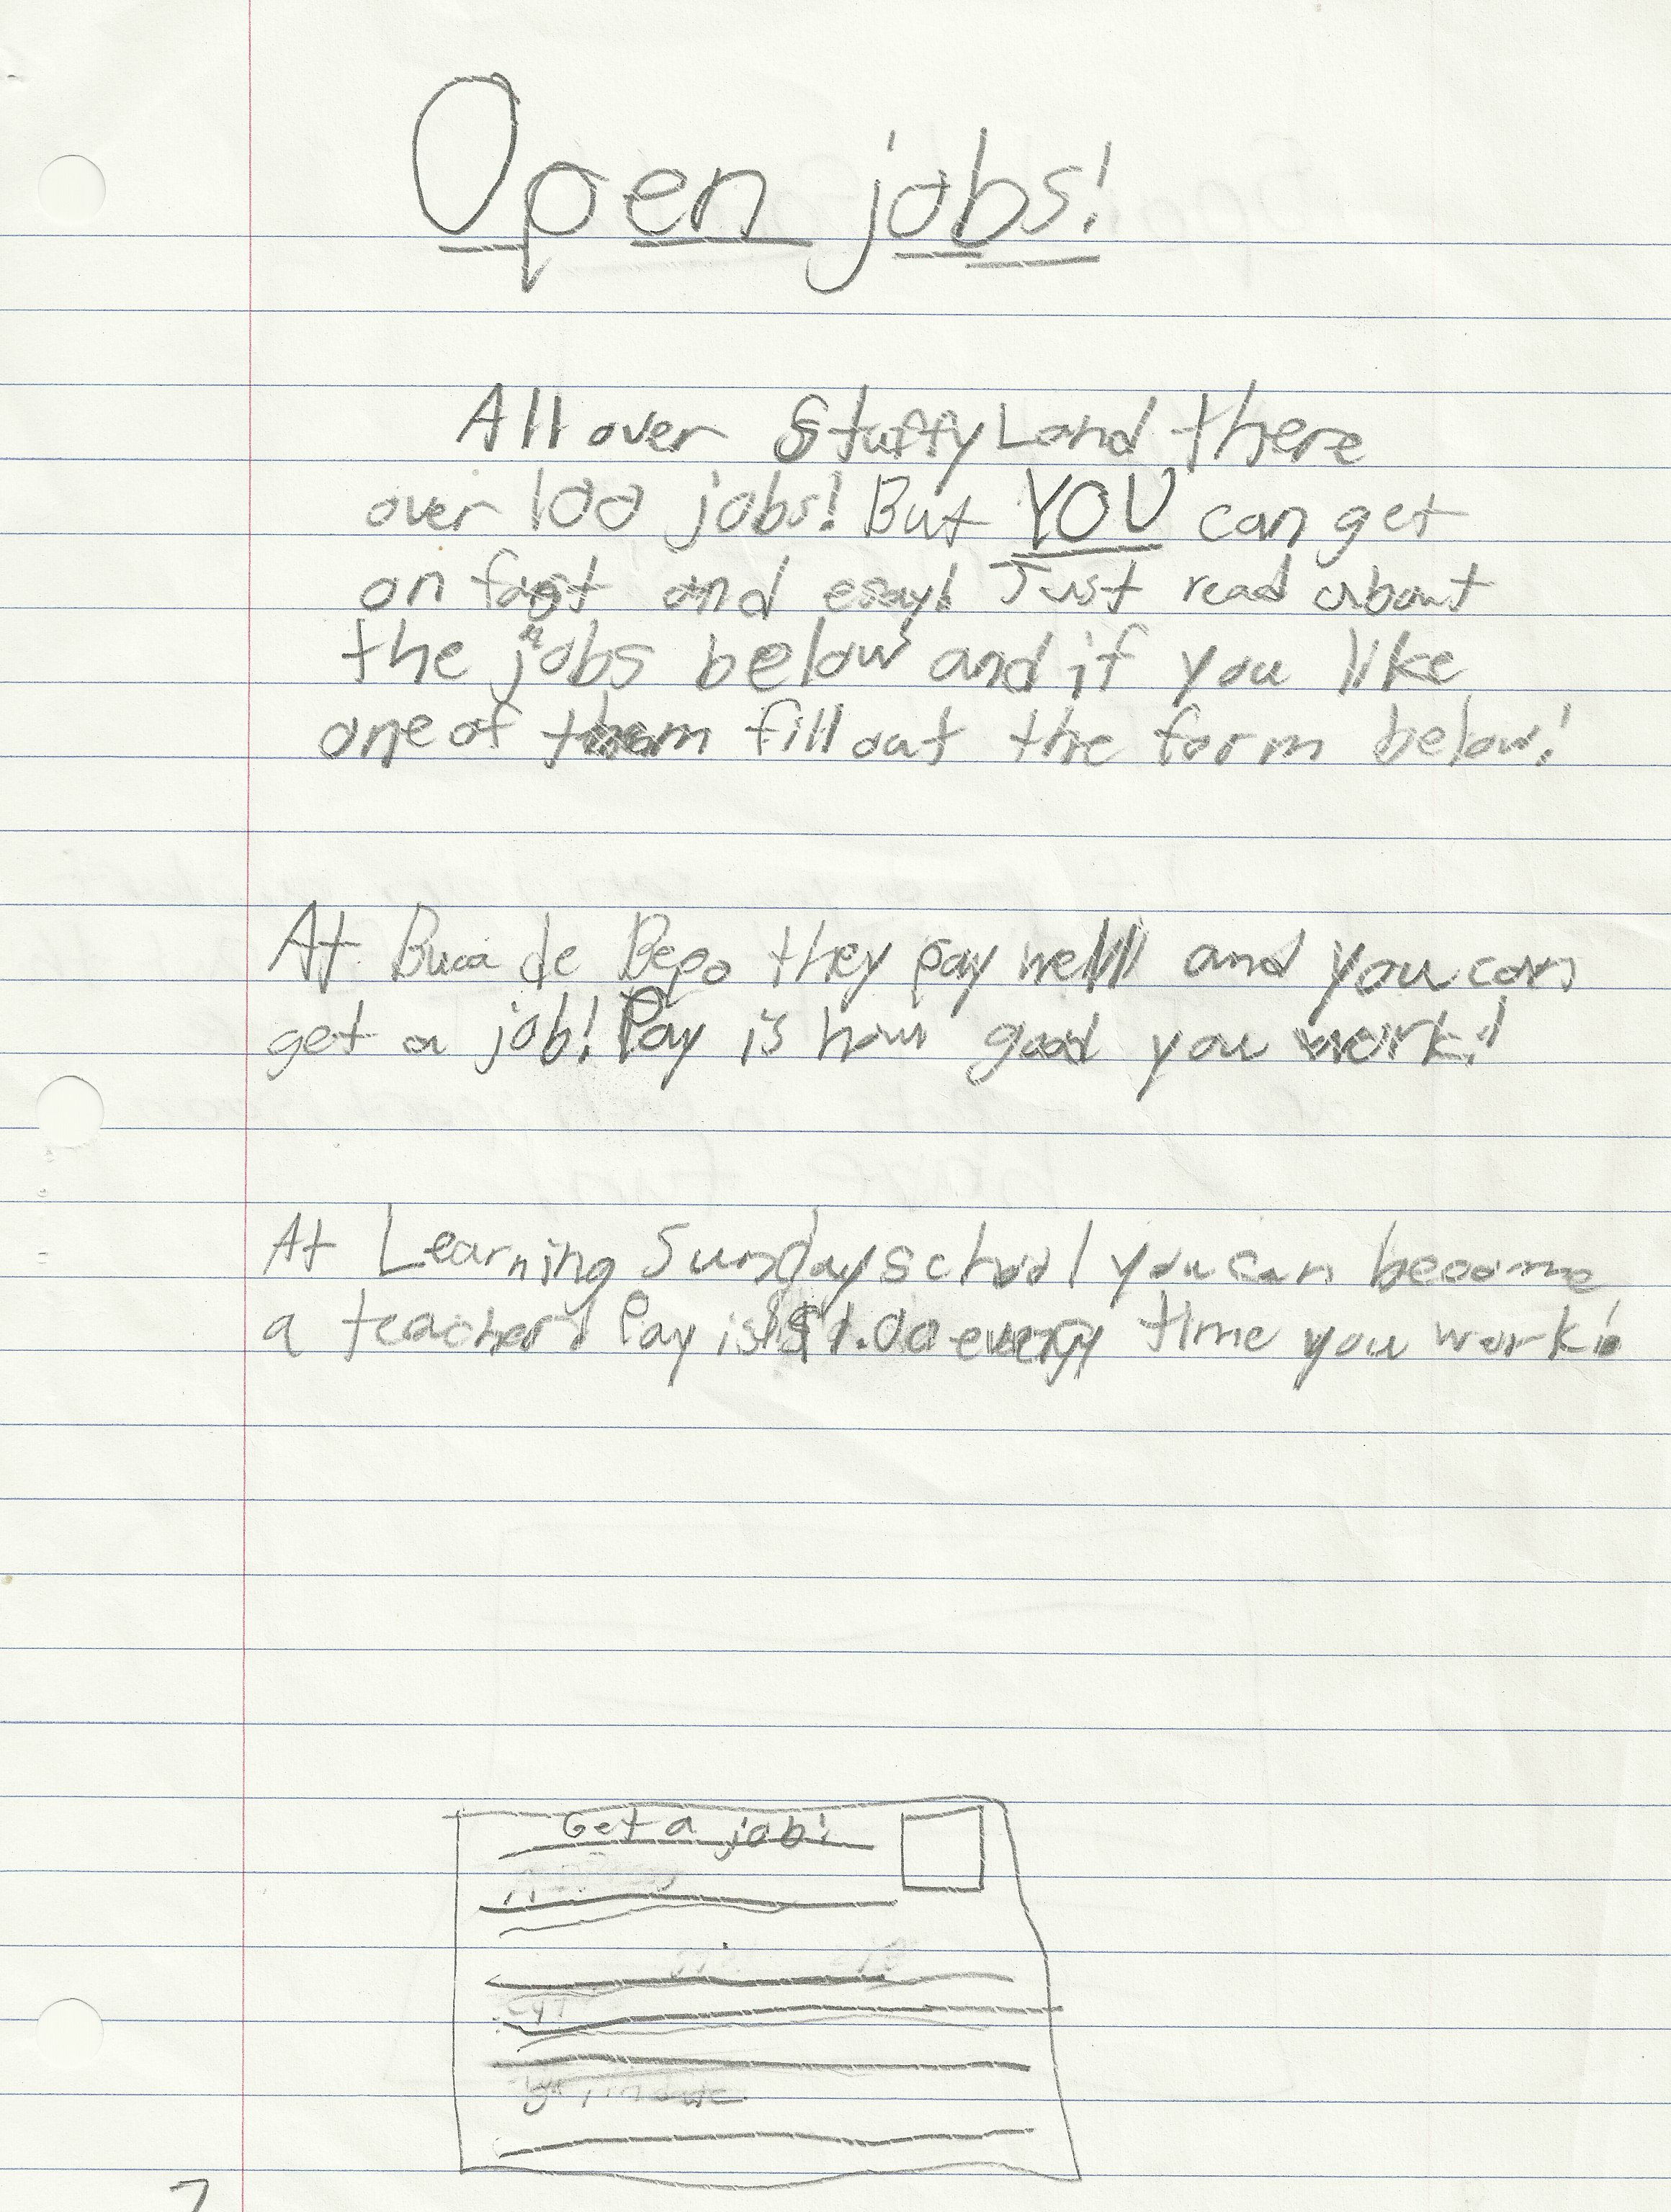 Open jobs!
All over StuffyLand there
over 100 jobs! But YOU can get
on fast and esay! Just read about
the jobs below and if you like
one of them fill out the form below!
At Buca de Bepo they pay well and you can
get a job! Pay is how good you work!
At Learning Sunday school you can become
a teacher! Pay is $1.00 every time you work!
Get a job!